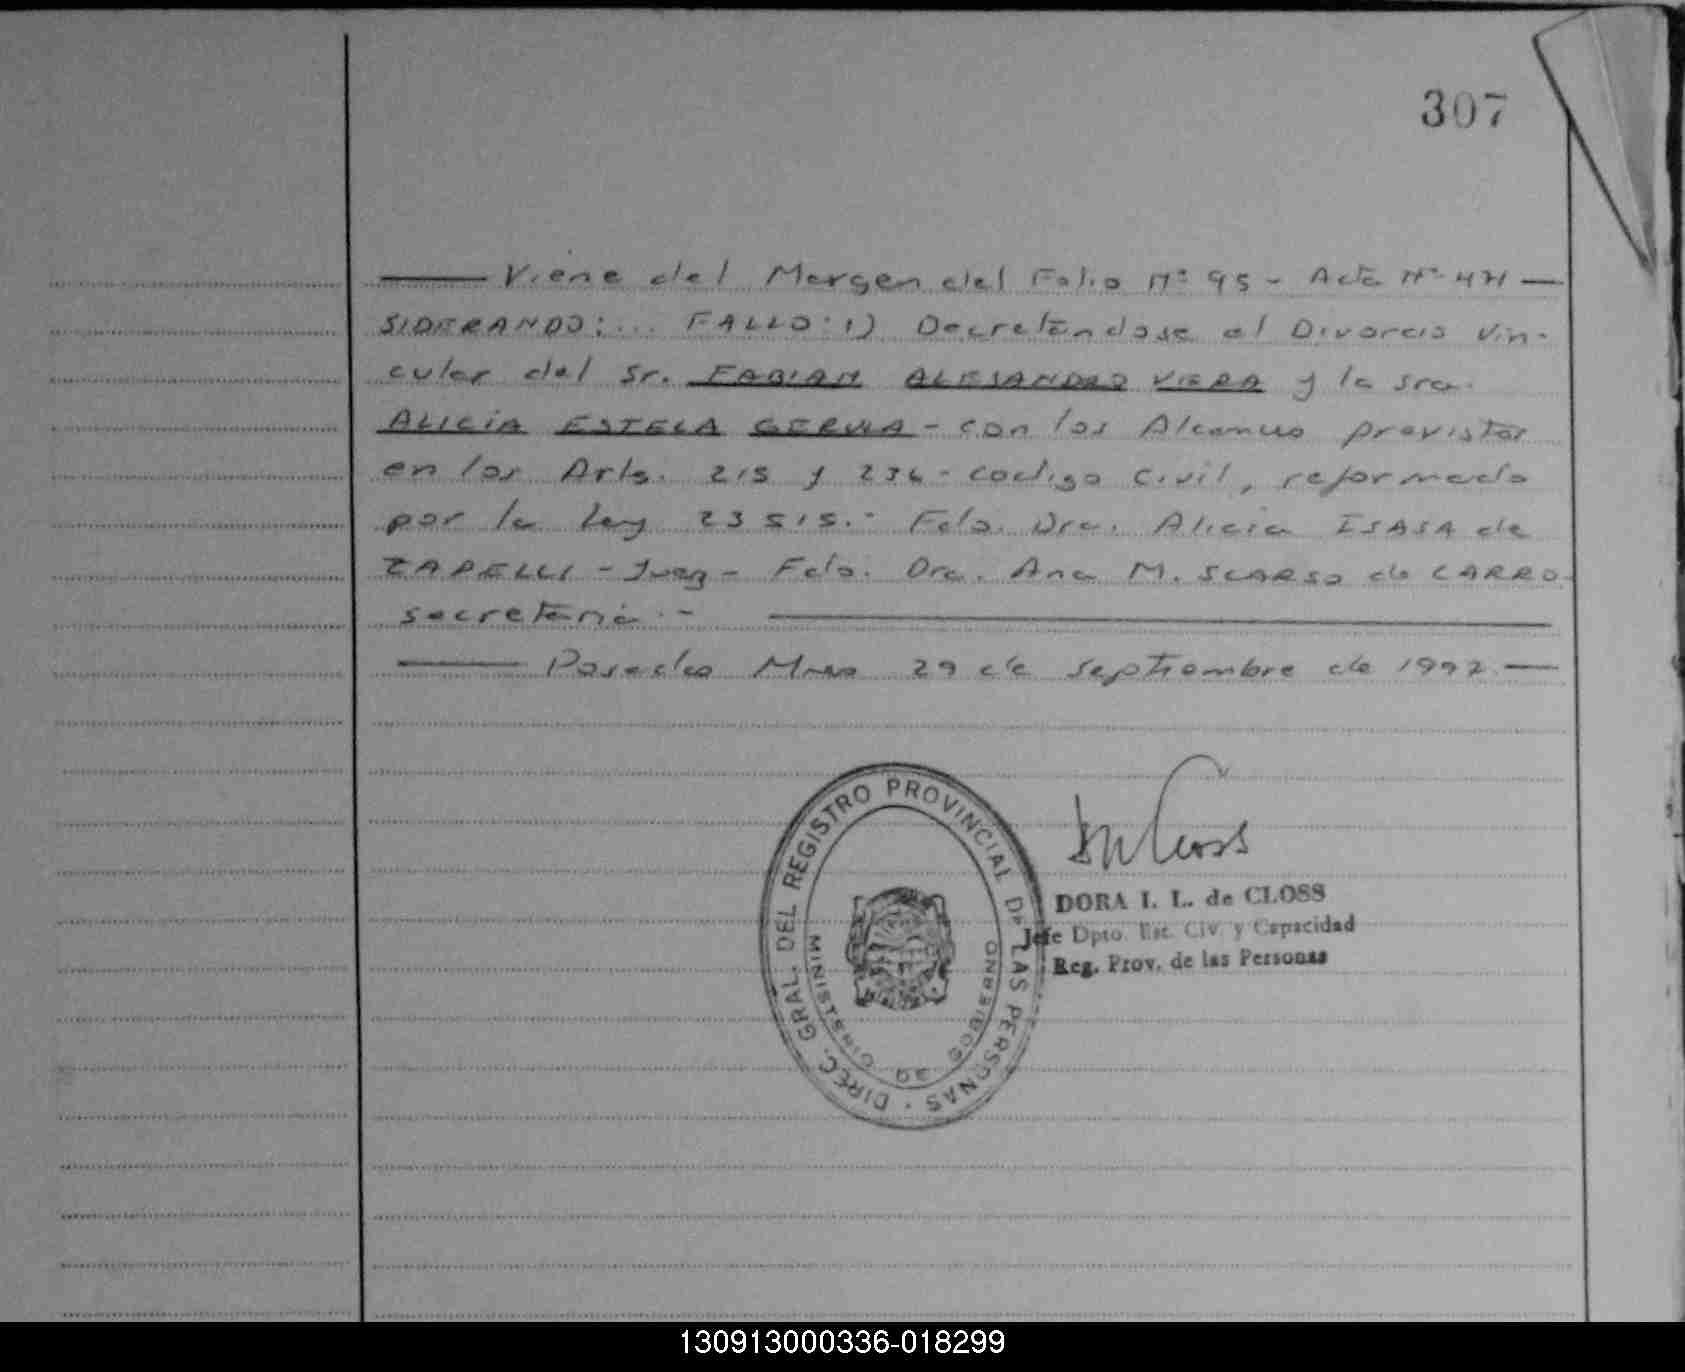 307
Viene del Margen del Folio Nº 95 - Acta Nº 471
SIDERANDO:... FALLO: 1) Decretándose el Divorcio Vin-
cular del Sr. FABIAN ALEJANDRO VIERA y la sra.
ALICIA ESTELA - con los Alcances previstos
en los Arts. 215 y 236 - Codigo Civil, reformado
por la Ley 23515.- Fdo. Dra. Alicia ISASA de
ZAPELLI - Juez - Fdo. Dra. Ana M. SCARSO de CARRO-
secretaria.-
Posadas Mnes 29 de septiembre de 1992.
DIREC. GRAL. DEL REGISTRO PROVINCIAL DE LAS PERSONAS
MINISTERIO DE GOBIERNO
DORA I. L. de CLOSS
Jefe Dpto. Est. Civ. y Capacidad
Reg. Prov. de las Personas
130913000336-018299